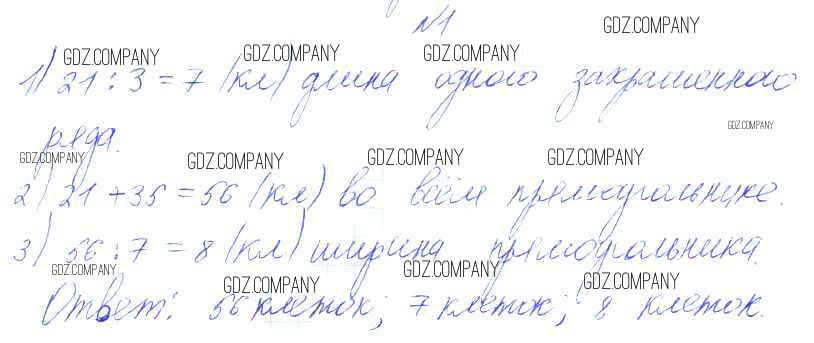 №1
GDZ.COMPANY
GDZ.COMPANY GDZ.COMPANY GDZ.COMPANY
1) 21 : 3 = 7 (кл) длина одного закрашенного
GDZ.COMPANY
ряда.
GDZ.COMPANY GDZ.COMPANY GDZ.COMPANY GDZ.COMPANY
2) 21 + 35 = 56 (кл) во всём прямоугольнике.
3) 56 : 7 = 8 (кл) ширина прямоугольника.
GDZ.COMPANY GDZ.COMPANY GDZ.COMPANY GDZ.COMPANY
Ответ: 56 клеток; 7 клеток; 8 клеток.